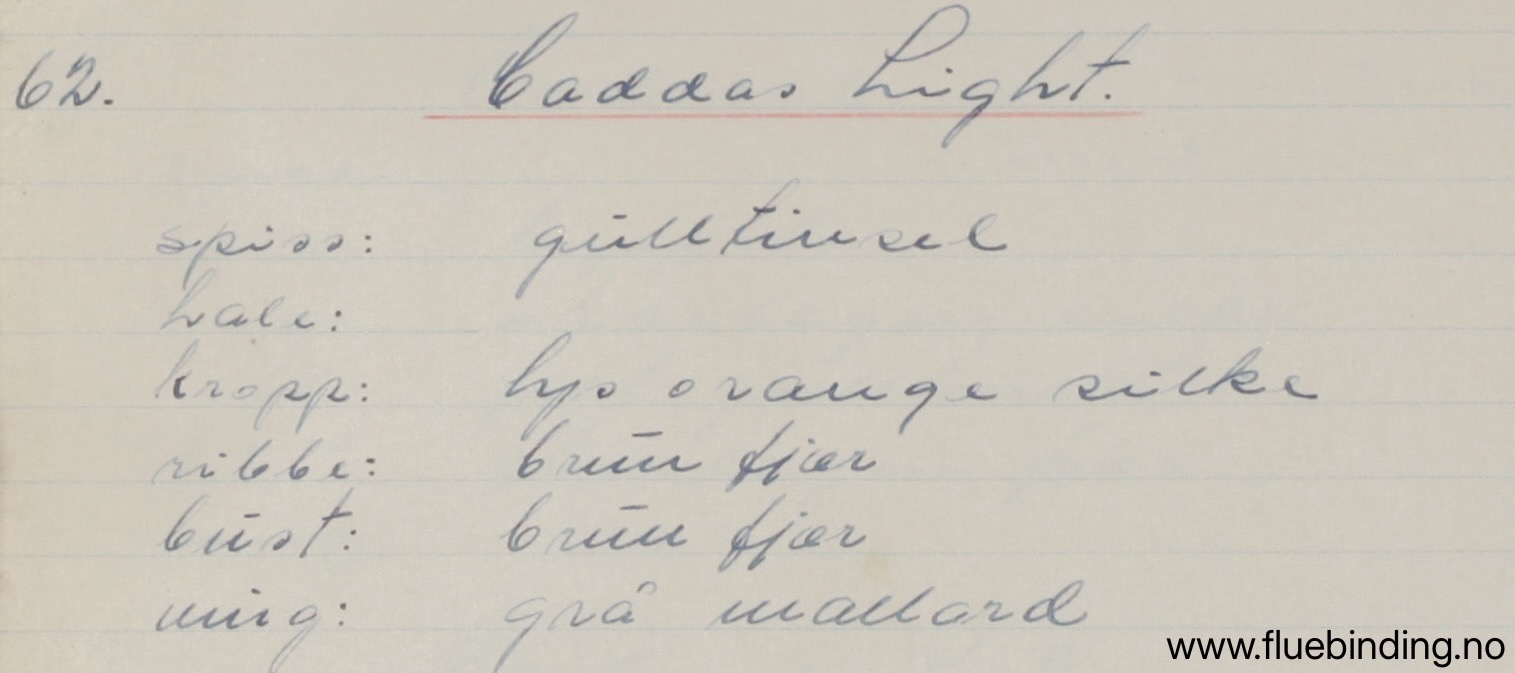 62. Caddas Light.
spiss: gulltinsel
hale:
kropp: lys orange silke
ribbe: brun fjær
bust: brun fjær
ving: grå mallard
www.fluebinding.no